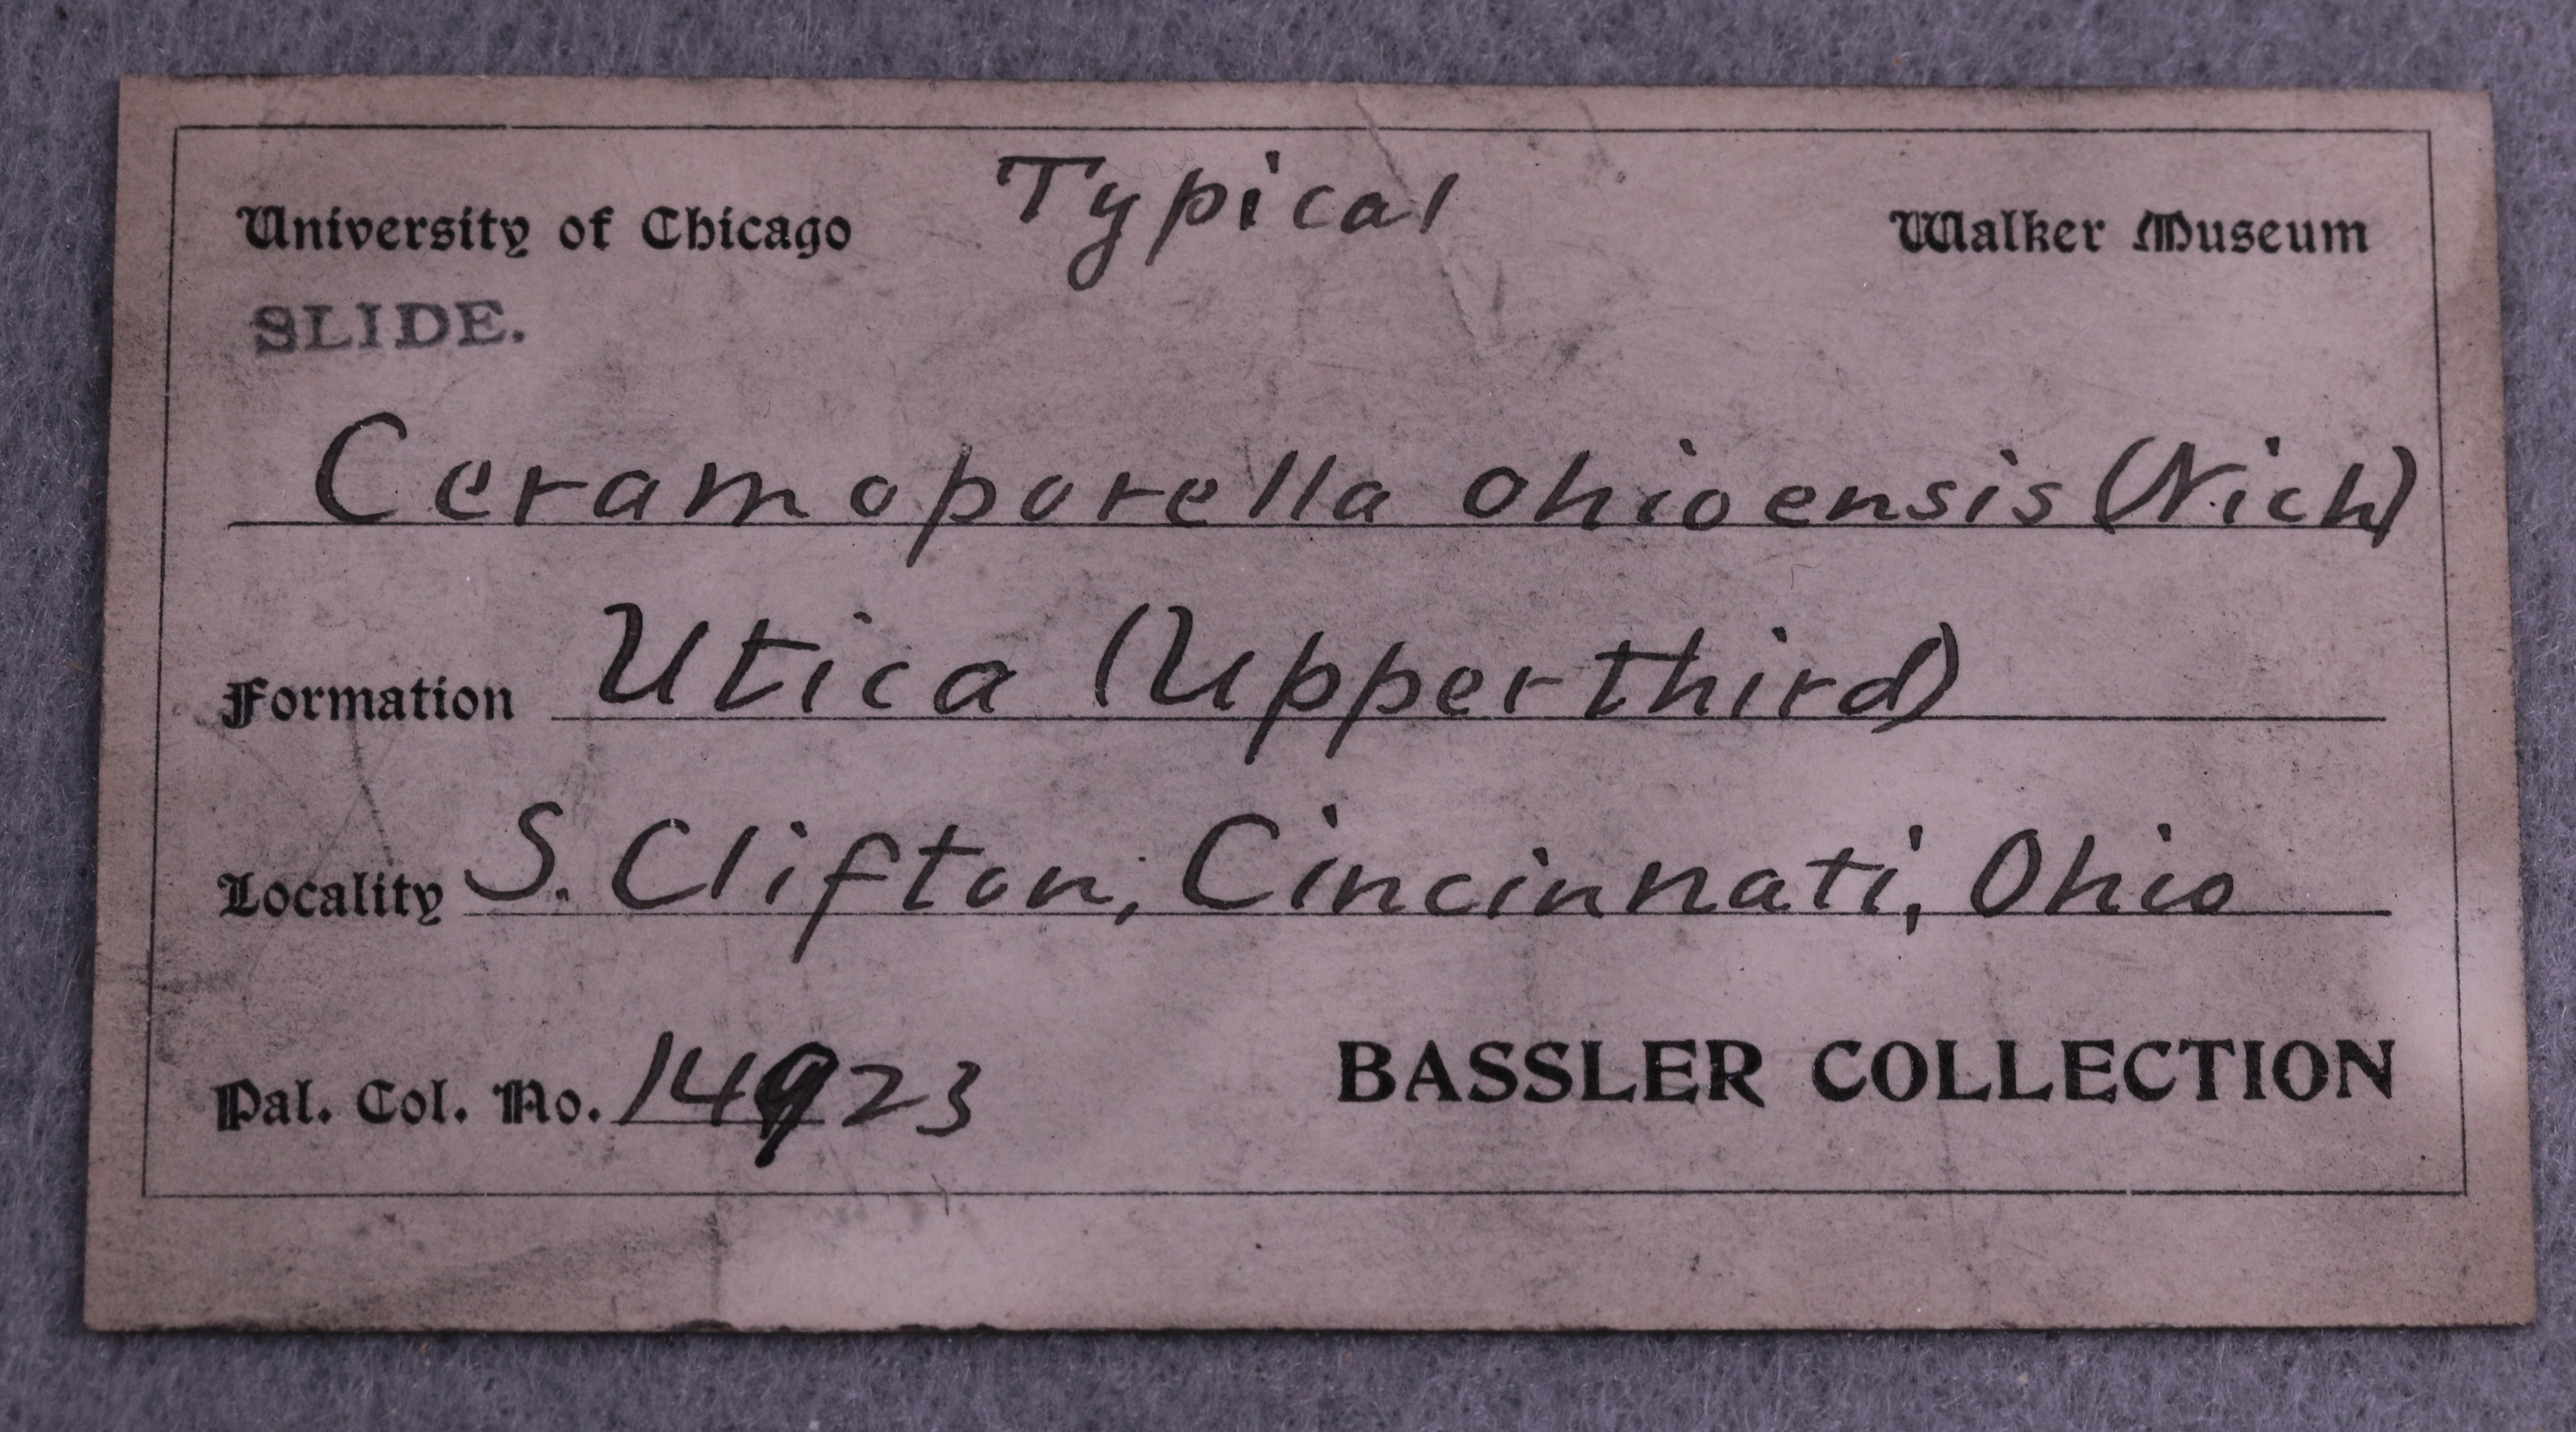 University of Chicago Typical Walker Museum
SLIDE.
Ceramoporella ohioensis (Nich)
Formation Utica (Upper third)
Locality S. Clifton, Cincinnati, Ohio
Pal. Col. No. 14923 BASSLER COLLECTION